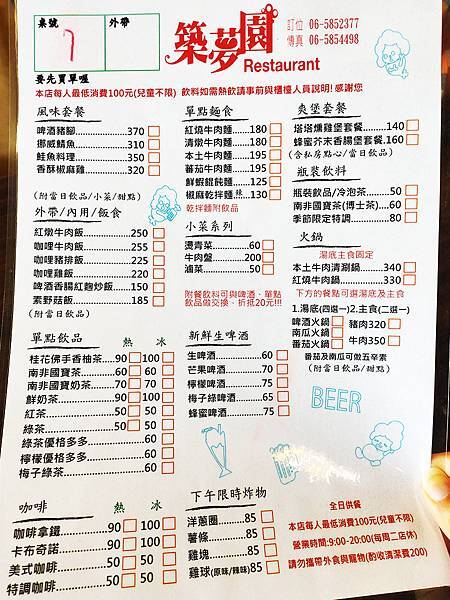 桌號
外帶
7
築夢園
Restaurant
訂位 06-5852377
傳真 06-5854498
要先買單喔
本店每人最低消費100元(兒童不限) 飲料如需熱飲請事前與櫃檯人員說明! 感謝您
風味套餐
啤酒豬腳 370
挪威鯖魚 310
鮭魚料理 350
香酥椒麻雞 320
(附當日飲品/小菜/甜點)
外帶/內用/飯食
紅燉牛肉飯 250
咖哩牛肉飯 250
咖哩豬排飯 225
咖哩雞飯 220
啤酒香腸紅麴炒飯 150
素野菇飯 185
(附當日飲品)
單點麵食
紅燒牛肉麵 180
清燉牛肉麵 180
本土牛肉麵 195
蕃茄牛肉麵 195
鮮蝦餛飩麵 125
椒麻乾拌麵 辣 130
乾拌麵附飲品
小菜系列
燙青菜 60
牛肉盤 200
滷菜 50
附餐飲料可與啤酒、單點
飲品做交換、折抵20元!!!
爽堡套餐
塔塔燻雞堡套餐 140
蜂蜜芥末香腸堡套餐 160
(含私房點心/當日飲品)
瓶裝飲料
瓶裝飲品/冷泡茶 50
南非國寶茶(博士茶) 60
季節限定特調 80
火鍋
湯底主食固定
本土牛肉清涮鍋 340
紅燒牛肉鍋 330
下方的餐點可選湯底及主食
1.湯底(四選一) 2.主食(二選一)
啤酒火鍋 豬肉320
南瓜火鍋 牛肉350
番茄火鍋
番茄及南瓜可做五辛素
(附當日飲品/甜點)
單點飲品 熱 冰
桂花佛手香柚茶 90 100
南非國寶茶 60 60
南非國寶奶茶 70 70
鮮奶茶 90 100
紅茶 50 50
綠茶 50 50
綠茶優格多多 60
檸檬優格多多 60
梅子綠茶 60
新鮮生啤酒
生啤酒 60
芒果啤酒 70
檸檬啤酒 75
梅子綠啤酒 75
蜂蜜啤酒 75
BEER
咖啡 熱 冰
咖啡拿鐵 90 100
卡布奇諾 90 100
美式咖啡 50 50
特調咖啡 50 50
下午限時炸物
洋蔥圈 85
薯條 85
雞塊 85
雞球(原味/辣味) 85
全日供餐
本店每人最低消費100元(兒童不限)
營業時間:9:00-20:00(每周二店休)
請勿攜帶外食與寵物(酌收清潔費200)